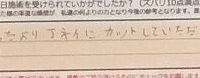 日施術を受けられていかがでしたか？（ズバリ10点満点
様の率直な感想が、私達の何よりの力となり今後の参考となります。
たより丁ネイに カットしていただ